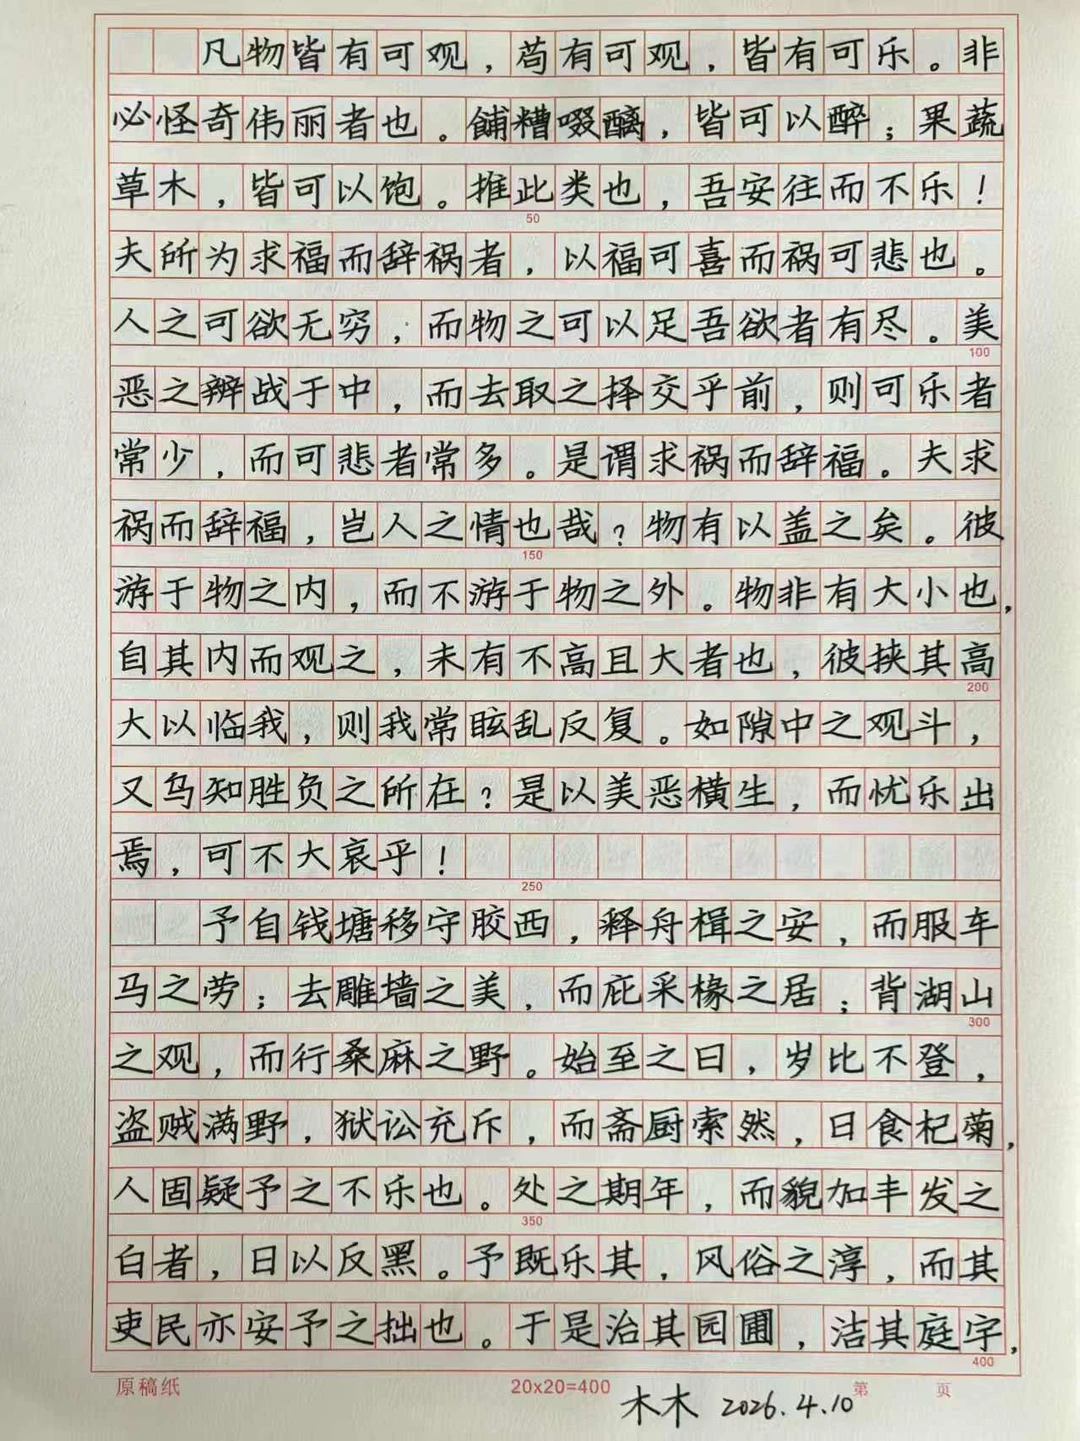 凡物皆有可观，苟有可观，皆有可乐。非
必怪奇伟丽者也。餔糟啜醨，皆可以醉；果蔬
草木，皆可以饱。推此类也，吾安往而不乐！
50
夫所为求福而辞祸者，以福可喜而祸可悲也。
人之可欲无穷，而物之可以足吾欲者有尽。美
100
恶之辨战于中，而去取之择交乎前，则可乐者
常少，而可悲者常多。是谓求祸而辞福。夫求
祸而辞福，岂人之情也哉？物有以盖之矣。彼
150
游于物之内，而不游于物之外。物非有大小也，
自其内而观之，未有不高且大者也，彼挟其高
200
大以临我，则我常眩乱反复。如隙中之观斗，
又乌知胜负之所在？是以美恶横生，而忧乐出
焉，可不大哀乎！
250
予自钱塘移守胶西，释舟楫之安，而服车
马之劳；去雕墙之美，而庇采椽之居；背湖山
300
之观，而行桑麻之野。始至之日，岁比不登，
盗贼满野，狱讼充斥，而斋厨索然，日食杞菊，
人固疑予之不乐也。处之期年，而貌加丰发之
350
白者，日以反黑。予既乐其，风俗之淳，而其
吏民亦安予之拙也。于是治其园圃，洁其庭宇，
400
原稿纸 20x20=400 第 页
木木 2026.4.10